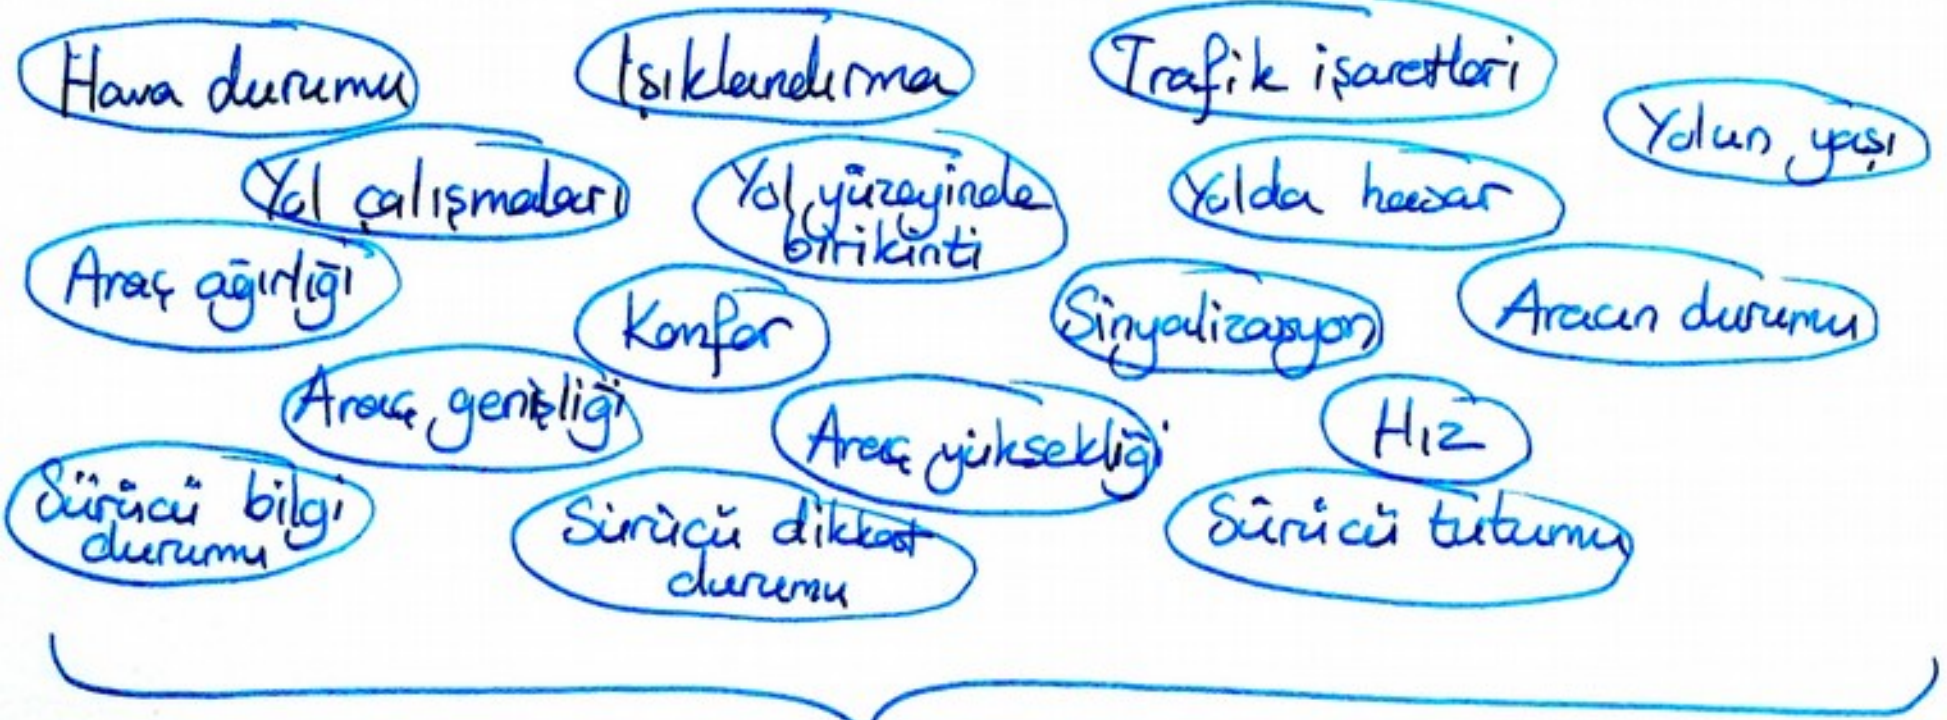 Hava durumu
Işıklandırma
Trafik işaretleri
Yolun yaşı
Yol çalışmaları
Yol yüzeyinde
birikinti
Yolda hasar
Araç ağırlığı
Konfor
Sinyalizasyon
Aracın durumu
Araç genişliği
Araç yüksekliği
Hız
Sürücü bilgi
durumu
Sürücü dikkat
durumu
Sürücü tutumu